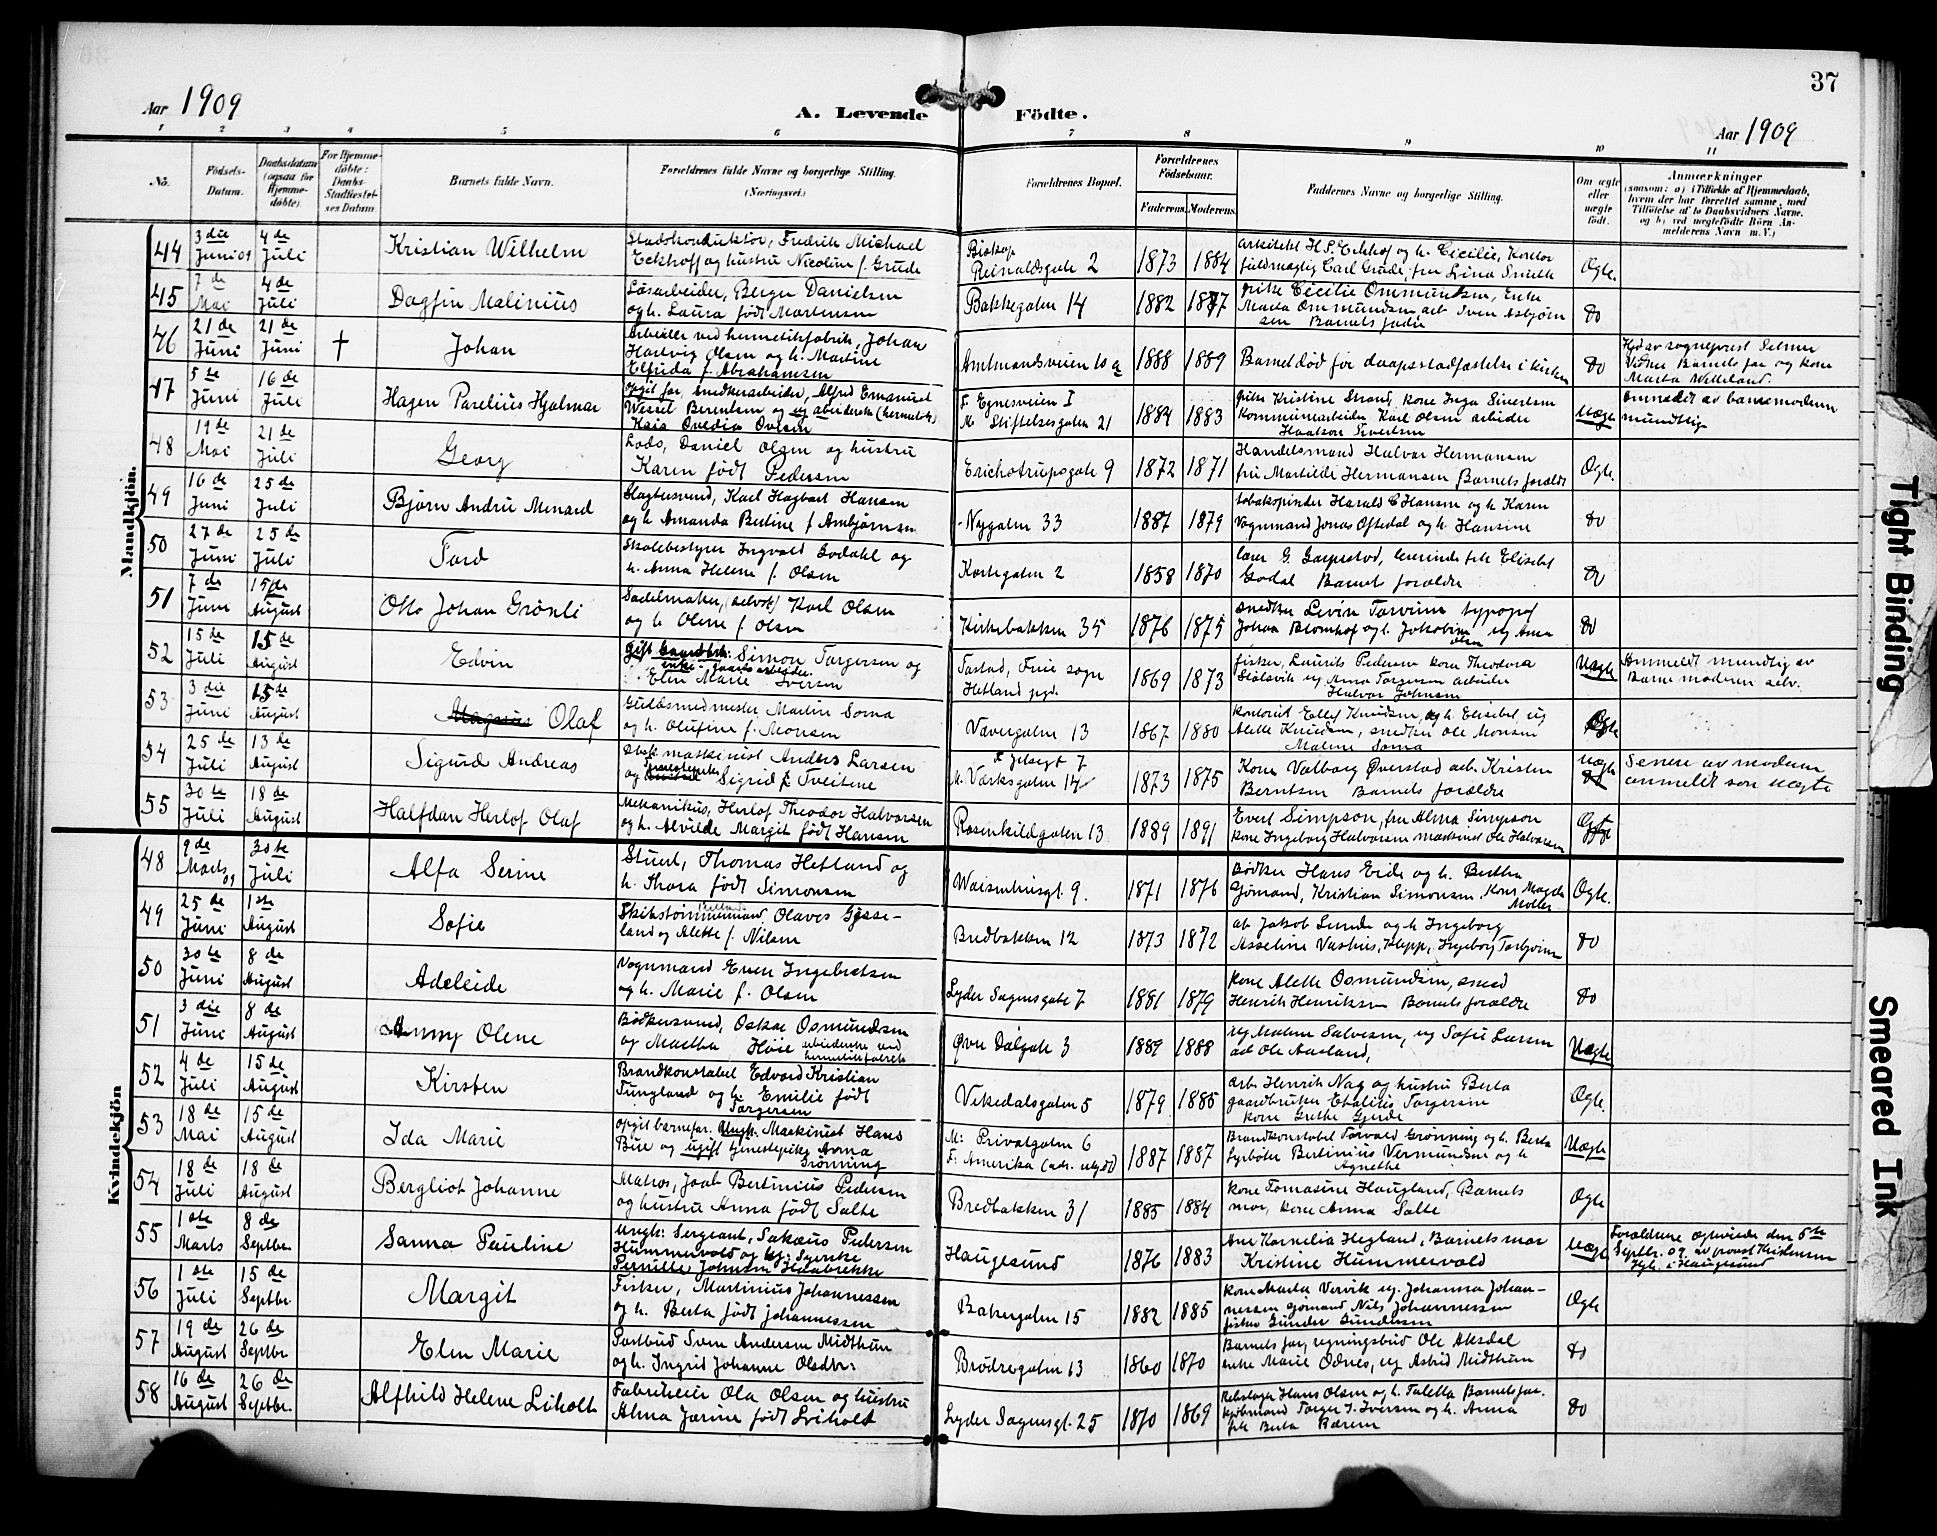 37
Aar 1909
A. Levende Födte.
Aar 1909
1 2 3 4 5 6 7 8 9 10 11
No.
Födsels-Datum.
Daabsdatum (ogsaa for Hjemme-döbte).
For Hjemme-döbte: Daabs-Stadfæstel-ses Datum.
Barnets fulde Navn.
Forældrenes fulde Navne og borgerlige Stilling. (Næringsvei.)
Forældrenes Bopæl.
Forældrenes Födselsaar.
Faderens. Moderens.
Faddernes Navne og borgerlige Stilling.
Om ægte eller uægte födt.
Anmærkninger (saasom: a) i Tilfælde af Hjemmedaab, hvem der har forrettet samme, med Tilföielse af to Daabsvidners Navne, og b) ved uægtefödte Börn An-melderens Navn m. V.)
Mandkjön.
44 3die Juni 09 4de Juli Kristian Wilhelm
Stadskonduktör, Fredrik Michael Eckhoff og hustru Nicoline f. Grude
Biskop Reinaldsgate 2 1873 1884
arkitekt H. S. Eckhof og h. Cicilie, Kontor fuldmægtig Carl Grude, frk Lina Smith Ægte.
45 7de Mai 4de Juli Dagfin Malinius
Løsarbeider, Berger Danielsen og h. Laura født Martensen
Bakkegaten 14 1882 1877
frk Cicilie Ommundsen, Enke Marta Ommundsen arb Sven Asbjørnsen Barnets fader do
46 21de Juni 21de Juni † Johan
Arbeider ved hermetikfabrik, Johan Hartvig Olsen og h. Martine Elfrida f. Abrahamsen
Amtmandsveien 10 a 1888 1889
Barnet død før daapsstadfæstelse i kirken do
Hjd av sogneprest Selmer Vidner Barnets far og kone Marta Welleland.
47 5te Juni 16de Juli Hagen Parelius Hjalmar
opgit far, snedkerarbeider, Alfred Emanuel Wessel Berentsen og ug arbeiderske (hermetik) Kaia Ovedia Ovesen
F. Egnesveien I M. Stiftelsesgaten 21 1884 1883
frk Kristine Strand, kone Inga Sivertsen Kommunearbeider Karl Olsen arbeider Haakon Sivertsen Uægte
anmeldt av barnemoderen mundtlig
48 19de Mai 21de Juli Georg
Lods, Daniel Olsen og hustru Karen født Pedersen
Erichstrupsgate 9 1872 1871
Handelsmand Halvor Hermansen fru Mathilde Hermansen Barnets forældre Ægte.
49 16de Juni 25de Juli Bjørn Andrè Menard
Slagtersvend, Karl Hagbart Hansen og h. Amanda Bertine f. Ambjørnsen
Nygaten 33 1887 1879
tobakspinder Harald C Hansen og h. Karen Vognmand Jonas Oftedal og h. Hansine do
50 27de Juni 25de Juli Tord
Skolebestyrer Ingvald Godahl og h. Anna Helene f. Olsen
Kortegaten 2 1858 1870
lærer G. Garpestad, lærerinde frk Elisabet Godal Barnets forældre do
51 7de Juni 15de August Otto Johan Grönli
Sadelmaker, (selvst) Karl Olsen og h Oline f. Olsen
Kirkebakken 35 1876 1875
snedker Levin Torvinn typograf Johan Blomhof og h. Jakobine ug Ane Olsen do
52 15de Juli 15de August Edvin
gift Gaardbrk: Simon Torgersen og enke Elen Marie Iversen
Tastad, Frue sogn Hetland pgd. 1869 1873
fisker, Laurits Pedersen kone Theodora Skolsvik ug Anna Torgersen arbeider Halvor Johnsen Uægte
Anmeldt mundtlig av Barnemoderen selv.
53 3die Juni 15de August Magnus Olaf
Guldsmedmester Martin Soma og h. Olufine f. Monsen
Vævergaten 13 1867 1880
kontorist Ellef Knudsen, og h. Elisabet, ug Alette Knudsen, snedker Ole Monsen Malene Soma Ægte
54 25de Juli 13de August Sigurd Andreas
maskinist Anders Larsen og tjenestepike Sigrid f. Tveitene
F. Jelsegt 7 M. Værksgaten 14 1873 1875
Kone Valborg Øverstad arb. Kristen Berntsen Barnets forældre uægte do
Senere av moderen anmeldt som uægte
55 30te Juli 18de August Halfdan Herlof Olaf
Mekanikus, Herlof Theodor Halvorsen og h. Alvilde Margit født Hansen
Rosenkildgaten 13 1889 1891
Evert Simpson, fru Alma Simpson kone Ingeborg Halvorsen maskinist Ole Halvorsen Ægte
Kvindekjön
48 9de Marts 09 30te Juli Alfa Serine
Stuert, Thomas Hetland og h. Thora født Simonsen
Waisenhusgt. 9. 1871 1876
Bødker Hans Eide og h. Bertha Sjømand, Kristian Simonsen, Kone Magda Møller Ægte.
49 25de Juni 1ste August Sofie
Skibstømmermand, Olaves Gjesse-land og Alette f. Nilsen
Bredbakken 12 1873 1872
arb. Jakob Lunde og h Ingeborg Asseline Vasshus, Klepp, Ingeborg Torbjørnsen do
50 30te Juni 8de August Adeleide
Vognmand Even Ingebretsen og h. Marie f. Olsen
Lyder Sagensgate 7 1881 1879
kone Alette Osmundsen, smed Henrik Henriksen Barnets forældre do
51 3die Juni 8de August Anny Olene
Bødkersvend, Oskar Osmundsen og Martha Høie arbeiderske ved hermetikfabrik
Øvre Dalgate 3 1889 1888
ug Malene Salvesen, ug Sofie Larsen arb Ole Aasland, Uægte
52 4de Juli 15de August Kirsten
Brandkonstabel Edvard Kristian Tungland og h. Emilie født Torgersen
Vikedalsgaten 5 1879 1885
arb. Henrik Nag og hustru Berta gaardbruker Ebelius Torgersen kone Grethe Gjerde Ægte.
53 18de Mai 15de August Ida Marie
opgit barnefar. Ungk. Maskinist Hans Bue og ugift tjenestepike Anna Grønning
M: Privatgaten 6 F: Amerika (adr. ukjdt) 1887 1887
Brandkonstabel Torvald Grønning og h. Berta Fyrbøter Bertinius Vermundsen og h Agnethe Uægte
54 18de Juli 18de August Bergliot Johanne
Matros, Joab Bertinius Pedersen og hustru Anna født Salte
Bredbakken 31 1885 1884
kone Tomasine Haugland, Barnets mor, kone Anna Salte Ægte
55 1ste Marts 8de Septbr. Sanna Pauline
Ungk: Sergeant, Sakæus Pedersen Hummervold og ug: Syerske Pernille Johnsen Haabrekke
Haugesund 1876 1883
Ane Kornelia Hegland, Barnets mor Kristine Hummervold Uægte
Forældrene Ægteviede den 5te Septbr. 09. av provst Kristensen i Haugesund
56 1ste Juli 15de Septbr. Margit
Fisker, Martinius Johannessen og h. Berta født Johannessen
Bakergaten 15 1882 1885
kone Marta Vervik ug. Johanna Johan-nessen sjømand Nils Johannessen fisker Gunder Gundersen Ægte
57 19de August 26de Septbr Elen Marie
Postbud Sven Andersen Midthun og h. Ingrid Johanne Olsdtr.
Brødregaten 13 1860 1870
Barnets far, regningsbud Ole Aksdal enke Marie Odnes, ug Astrid Midthun do
58 16de August 26de Septbr. Alfhild Helene Liholt
Fabrikeier Ola Olsen og hustru Alma Jørine født Liholt
Lyder Sagensgt. 25 1870 1869
Rebslager Hans Olsen og h. Taletta Barnets far. kjøbmand Torger S. Iversen og h. Anna frk Berta Børesen do
Tight Binding
Smeared Ink